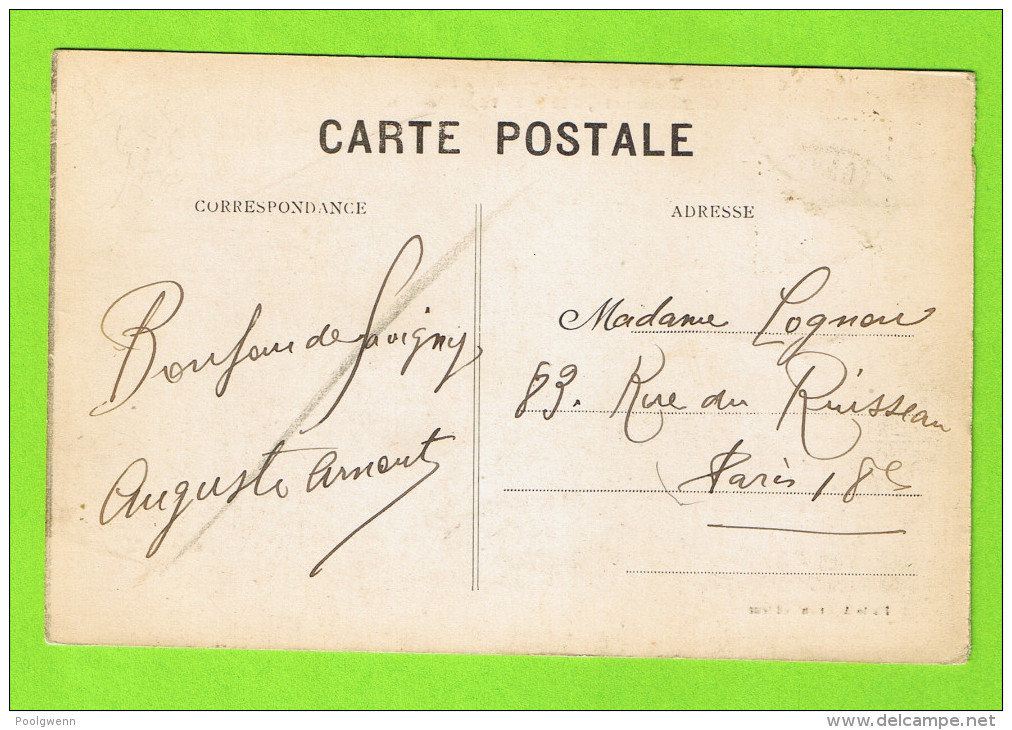 CARTE POSTALE
CORRESPONDANCE
ADRESSE
de Savigny
Auguste Arnout
Madame Lognon
83. Rue du Ruisseau
Paris 18e
Poolgwenn
www.delcampe.net